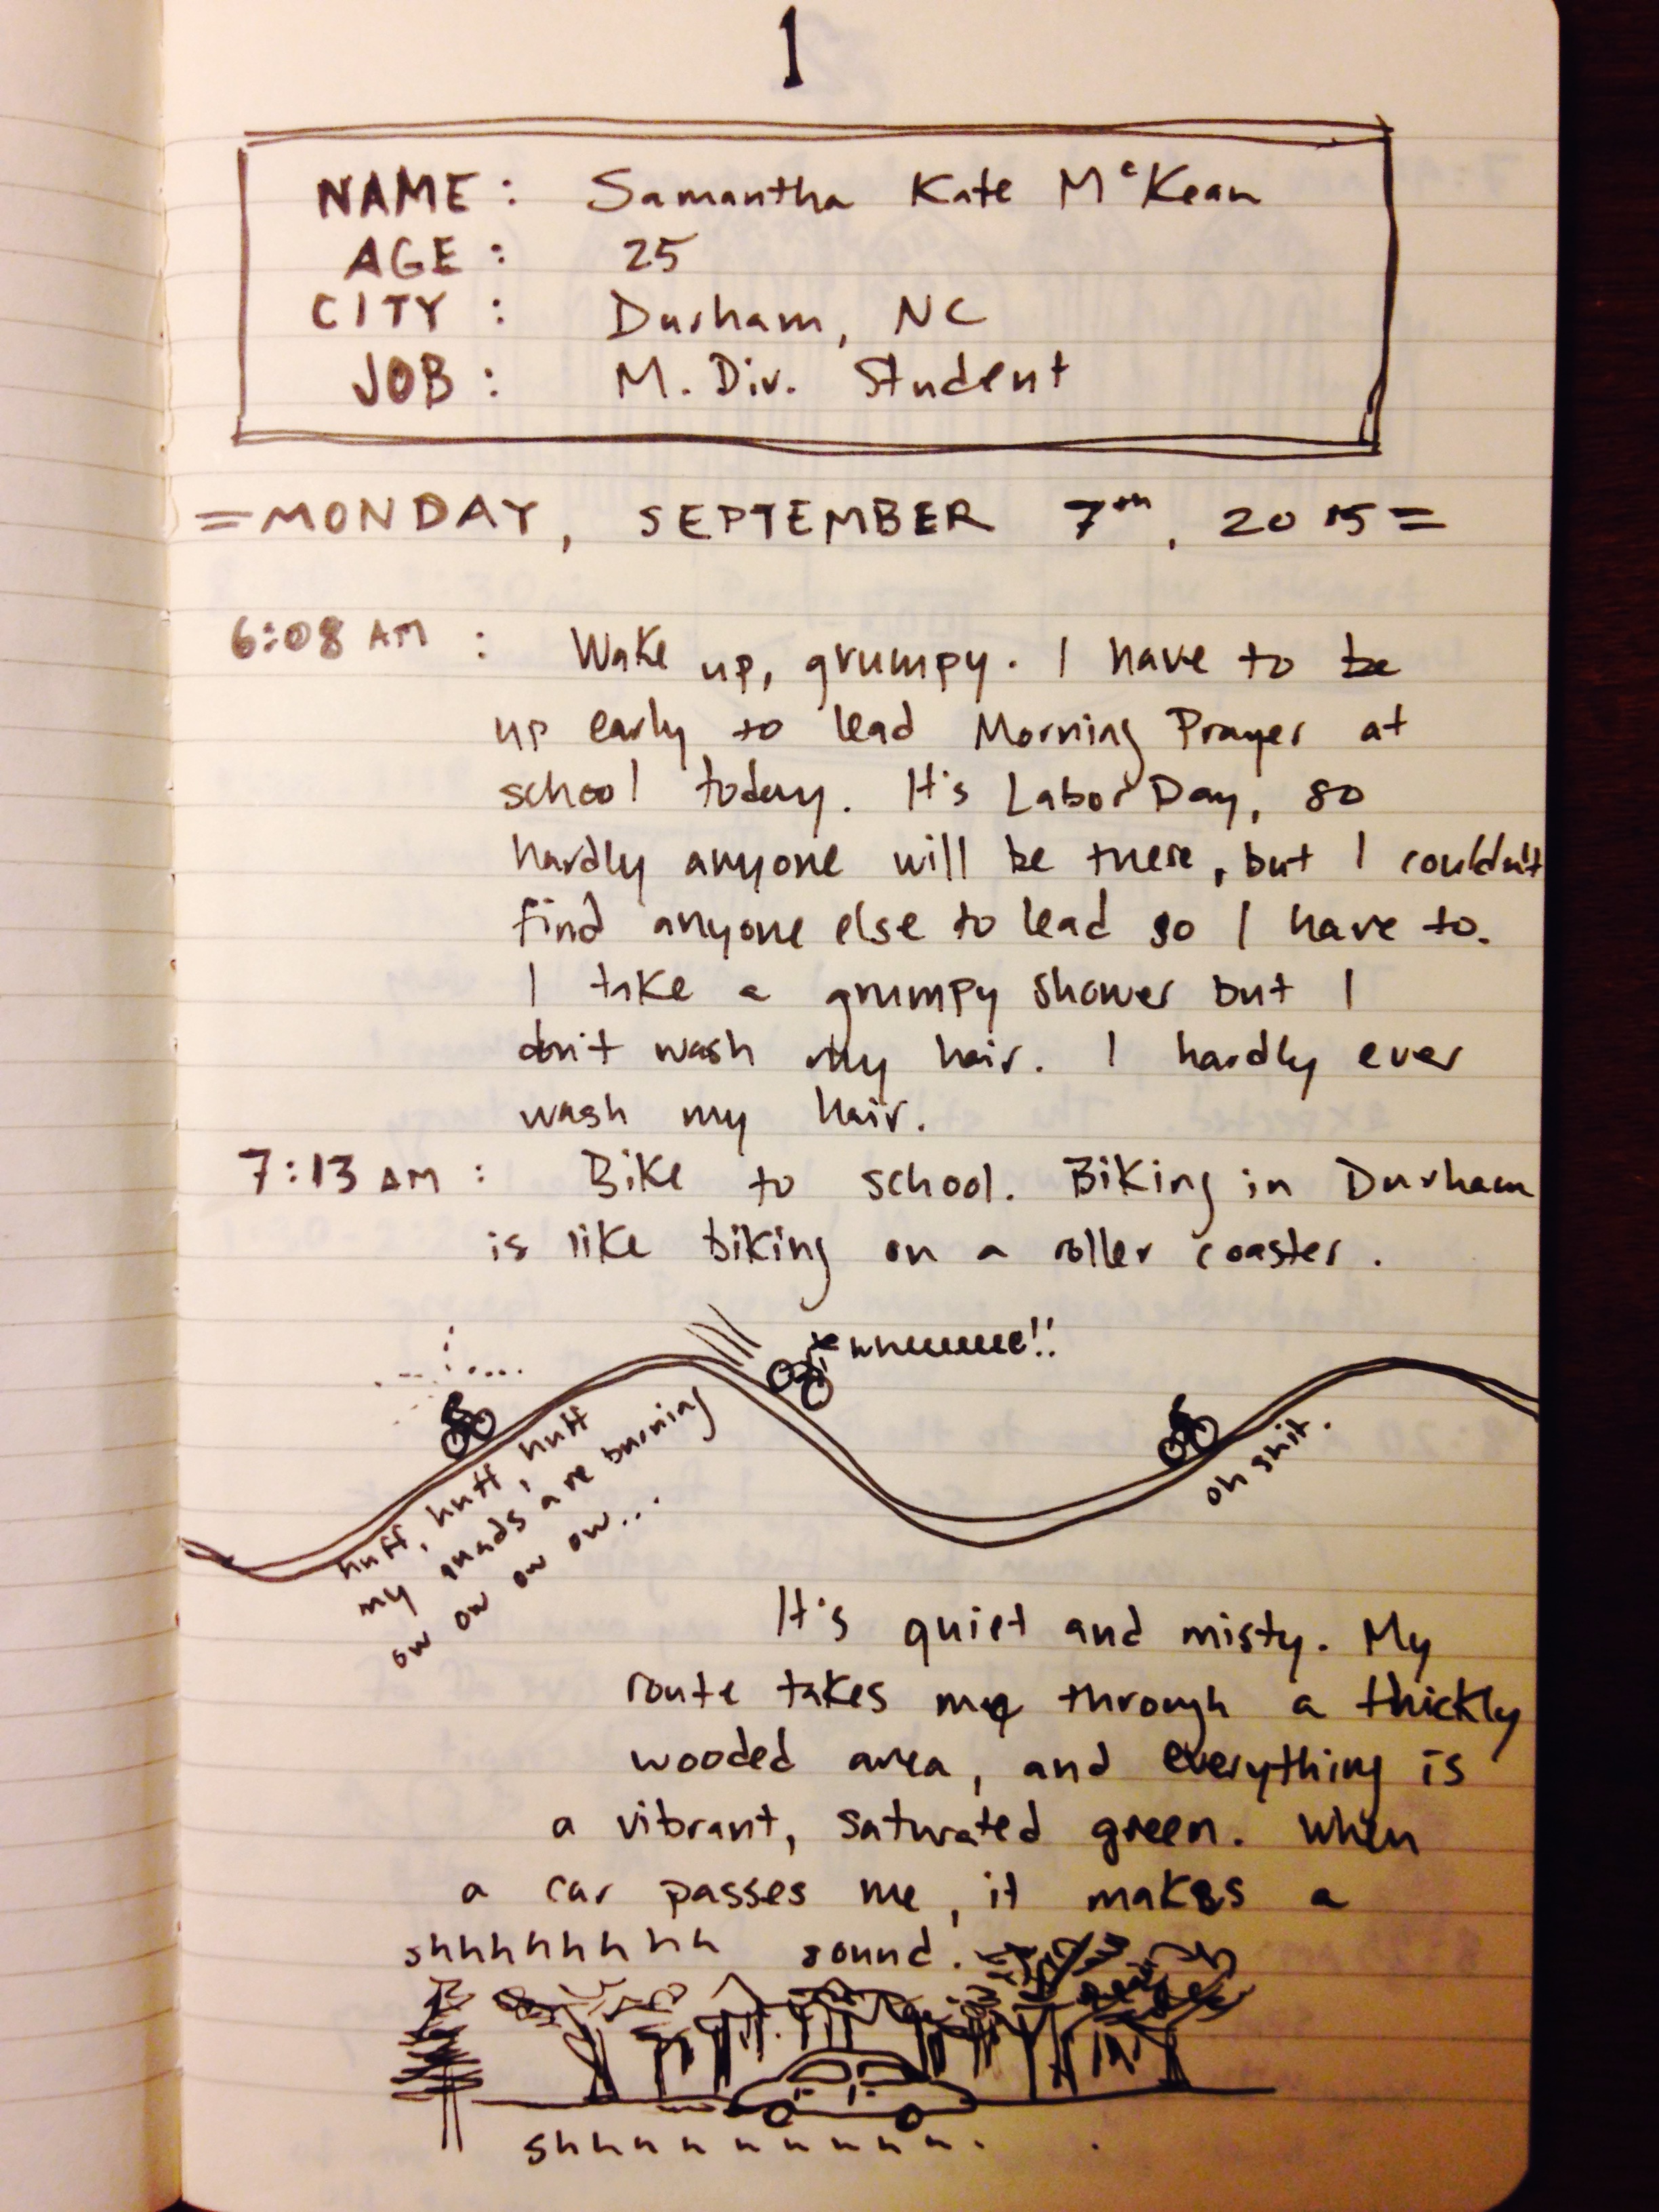 1
NAME: Samantha Kate McKean
AGE: 25
CITY: Durham, NC
JOB: M. Div. Student
=MONDAY, SEPTEMBER 7th, 2015=
6:08 AM: Wake up, grumpy. I have to be
up early to lead Morning Prayer at
school today. It's Labor Day, so
hardly anyone will be there, but I couldn't
find anyone else to lead so I have to.
I take a grumpy shower but I
don't wash my hair. I hardly ever
wash my hair.
7:13 AM: Bike to school. Biking in Durham
is like biking on a roller coaster.
wheeeeeee!!
huff, huff, huff
my quads are burning
ow ow ow ow...
oh shit.
It's quiet and misty. My
route takes me through a thickly
wooded area, and everything is
a vibrant, saturated green. When
a car passes me, it makes a
shhhhhhhh sound.
shhhhhhhhh.